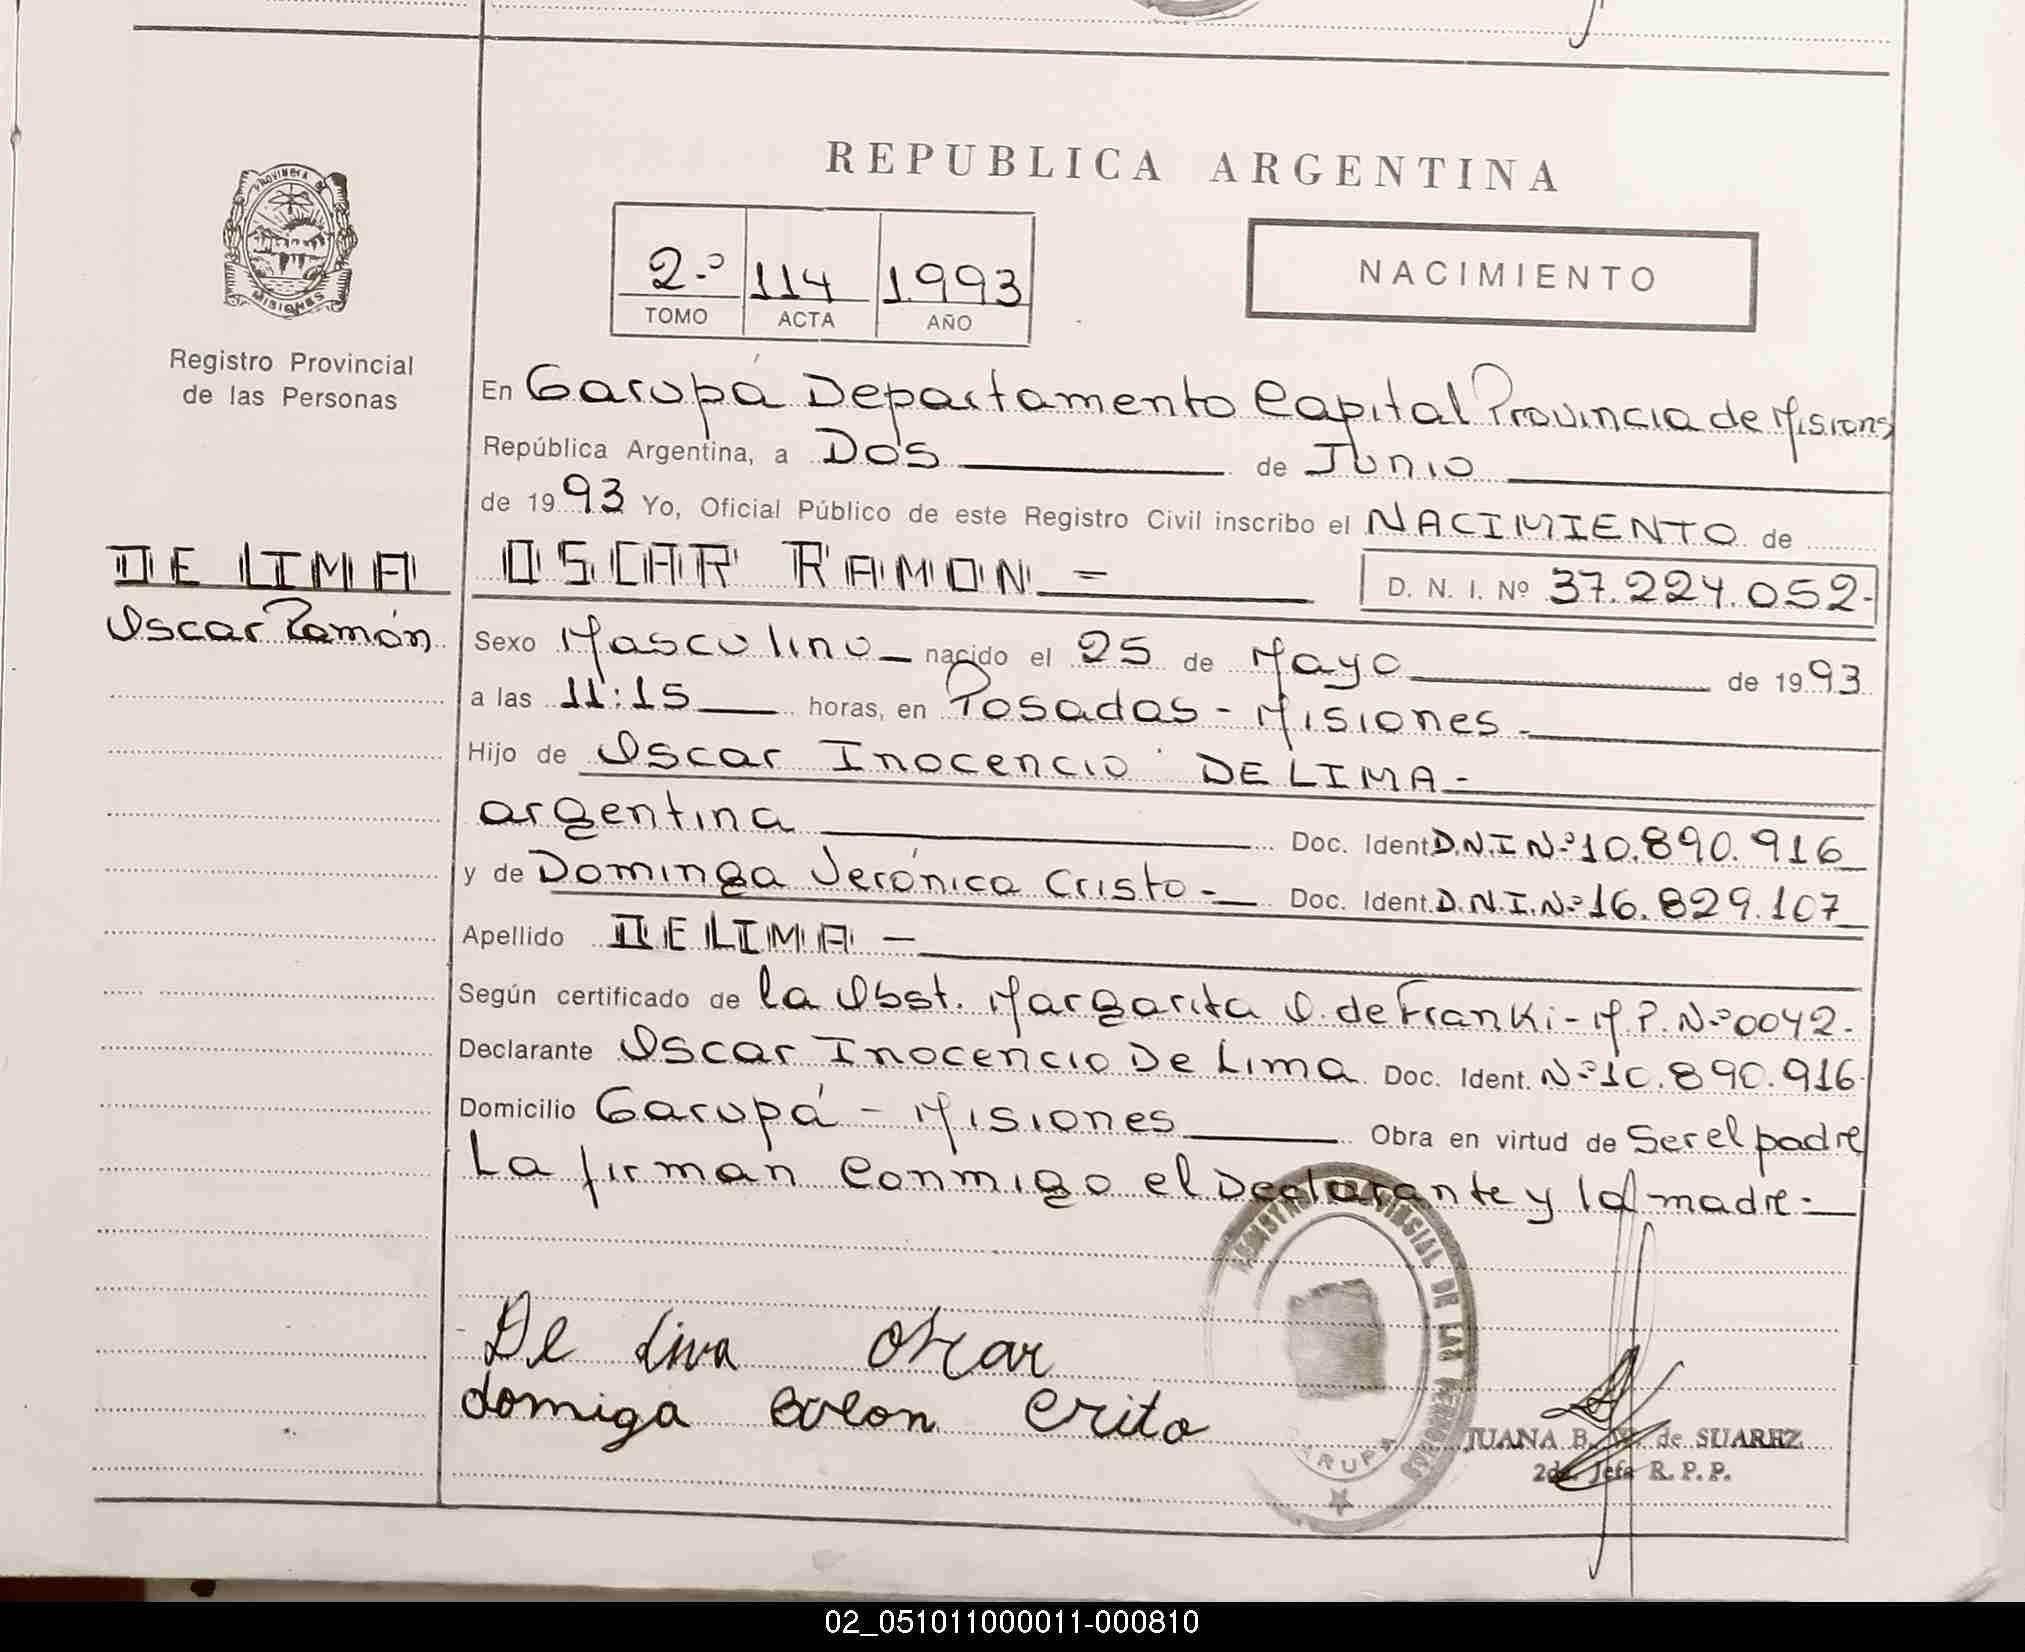 REPUBLICA ARGENTINA
PROVINCIA DE
MISIONES
Registro Provincial
de las Personas
2.º 114 1993
TOMO ACTA AÑO
NACIMIENTO
En Garupá Departamento Capital Provincia de Misions
República Argentina, a Dos de Junio
de 1993 Yo, Oficial Público de este Registro Civil inscribo el NACIMIENTO de
DE LIMA OSCAR RAMON = D. N. I. Nº 37.224.052-
Oscar Ramón
Sexo Masculino nacido el 25 de Mayo de 1993
a las 11:15 horas, en Posadas - Misiones -
Hijo de Oscar Inocencio DE LIMA -
argentina Doc. Ident D.N.I Nº 10.890.916
y de Dominga Verónica Cristo - Doc. Ident. D.N.I. Nº 16.829.107
Apellido DE LIMA -
Según certificado de la Obst. Margarita O. de Franki - M.P. Nº 0042.
Declarante Oscar Inocencio De Lima Doc. Ident. Nº 10.890.916.
Domicilio Garupá - Misiones Obra en virtud de Ser el padre
La firman Conmigo el Declarante y la madre -
REGISTRO PROVINCIAL DE LAS PERSONAS
GARUPA
De Liva Oscar
domiga
JUANA B. de SUAREZ
2da. Jefa R. P. P.
02_051011000011-000810